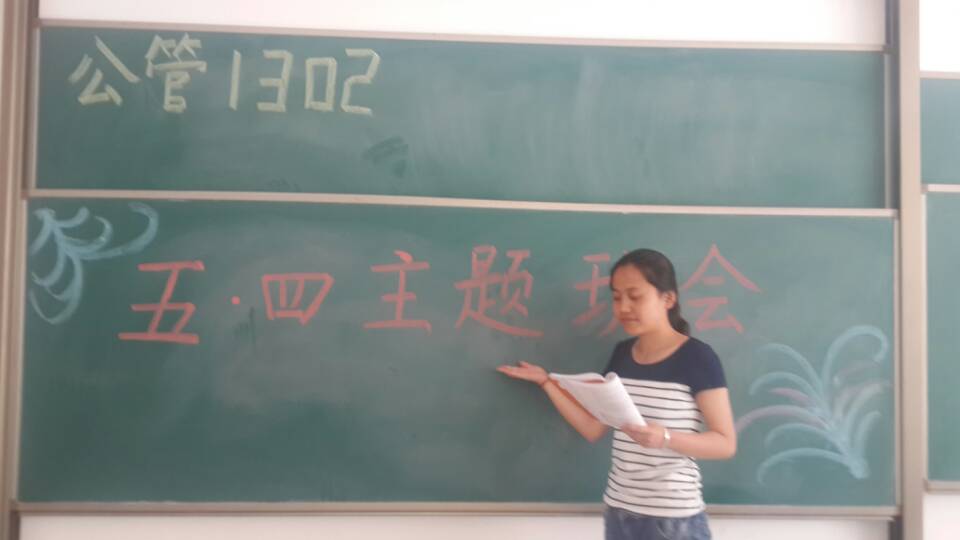 公管1302
五·四主题班会